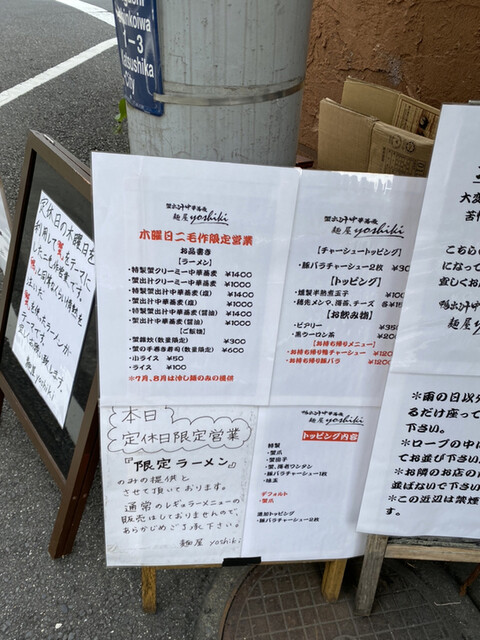 Shinkoiwa
1-3
Katsushika
City
定休日の水曜日を
利用して蟹をテーマに
した二毛作営業です
蟹出汁中華蕎麦
麺屋yoshiki
水曜日二毛作限定営業
お品書き
【ラーメン】
・特製蟹クリーミー中華蕎麦 ¥1400
・蟹出汁クリーミー中華蕎麦 ¥1000
・特製蟹出汁中華蕎麦(塩) ¥1400
・蟹出汁中華蕎麦(塩) ¥1000
・特製蟹出汁中華蕎麦(醤油) ¥1400
・蟹出汁中華蕎麦(醤油) ¥1000
【ご飯物】
・蟹雑炊(数量限定) ¥300
・蟹の手巻き寿司(数量限定) ¥600
・小ライス ¥50
・ライス ¥100
*7月、8月は冷し麺のみの提供
蟹出汁中華蕎麦
麺屋yoshiki
【チャーシュートッピング】
・豚バラチャーシュー2枚
【トッピング】
・燻製半熟煮玉子
・穂先メンマ、海苔、チーズ
【お飲物】
・ビアリー ¥350
・黒ウーロン茶
【お持ち帰りメニュー】
・お持ち帰り鴨チャーシュー ¥1200
・お持ち帰り豚バラ ¥1200
本日
定休日限定営業
『限定ラーメン』
のみの提供と
させて頂いております。
通常のレギュラーメニューの
販売はしておりませんので、
あらかじめご了承下さい。
麺屋 yoshiki
麺屋yoshiki
トッピング内容
特製
・蟹爪
・蟹団子
・豚バラチャーシュー1枚
・味玉
デフォルト
・蟹爪
追加トッピング
・豚バラチャーシュー2枚
大変
こちら
になって
宜しくお
鴨出汁中
麺屋
*雨の日以外
るだけ座って
下さい。
*ロープの中に
てお並び下さい
*お隣のお店の
並ばないで下さい
*この近辺は禁煙
す。